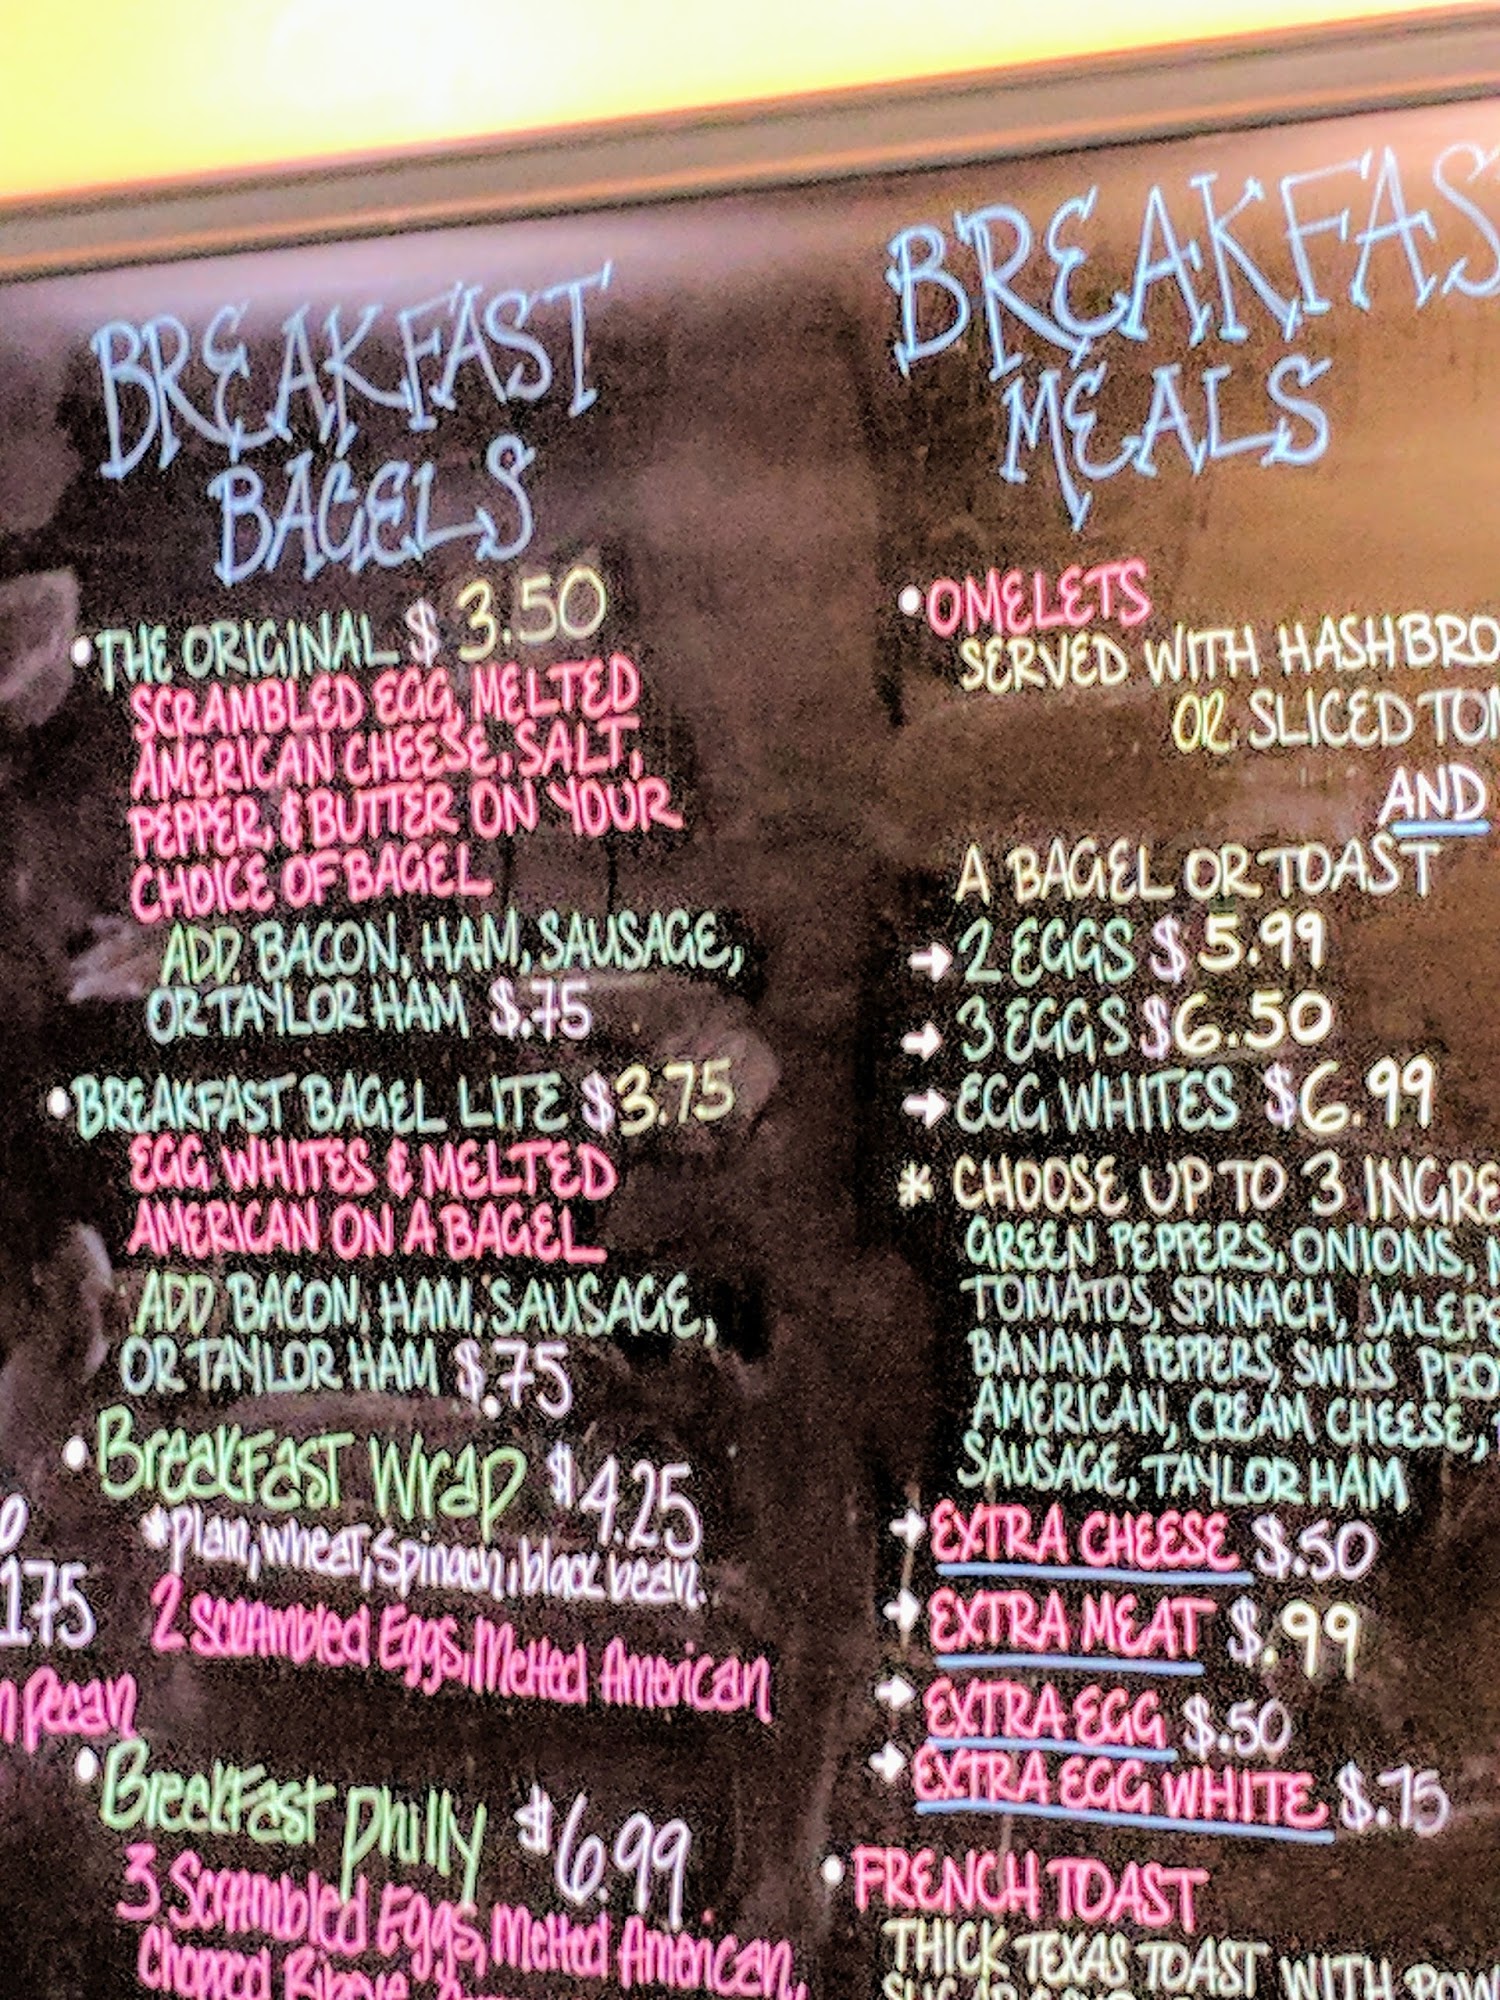 BREAKFAST
BAGELS
• THE ORIGINAL $ 3.50
SCRAMBLED EGG, MELTED
AMERICAN CHEESE, SALT,
PEPPER, & BUTTER ON YOUR
CHOICE OF BAGEL
ADD BACON, HAM, SAUSAGE,
OR TAYLOR HAM $.75
• BREAKFAST BAGEL LITE $3.75
EGG WHITES & MELTED
AMERICAN ON A BAGEL
ADD BACON, HAM, SAUSAGE,
OR TAYLOR HAM $.75
• Breakfast Wrap $4.25
*plain, wheat, spinach, black bean.
2 scrambled Eggs, Melted American
• Breakfast Philly $6.99
3 Scrambled Eggs, Melted American,
Chopped
175
Pecan
BREAKFAS
MEALS
• OMELETS
SERVED WITH HASHBRO
OR SLICED TOM
AND
A BAGEL OR TOAST
→ 2 EGGS $ 5.99
→ 3 EGGS $6.50
→ EGG WHITES $6.99
* CHOOSE UP TO 3 INGRE
GREEN PEPPERS, ONIONS,
TOMATOS, SPINACH, JALEPE
BANANA PEPPERS, SWISS PRO
AMERICAN, CREAM CHEESE,
SAUSAGE, TAYLOR HAM
→ EXTRA CHEESE $.50
→ EXTRA MEAT $.99
→ EXTRA EGG $.50
→ EXTRA EGG WHITE $.75
• FRENCH TOAST
THICK TEXAS TOAST WITH POW